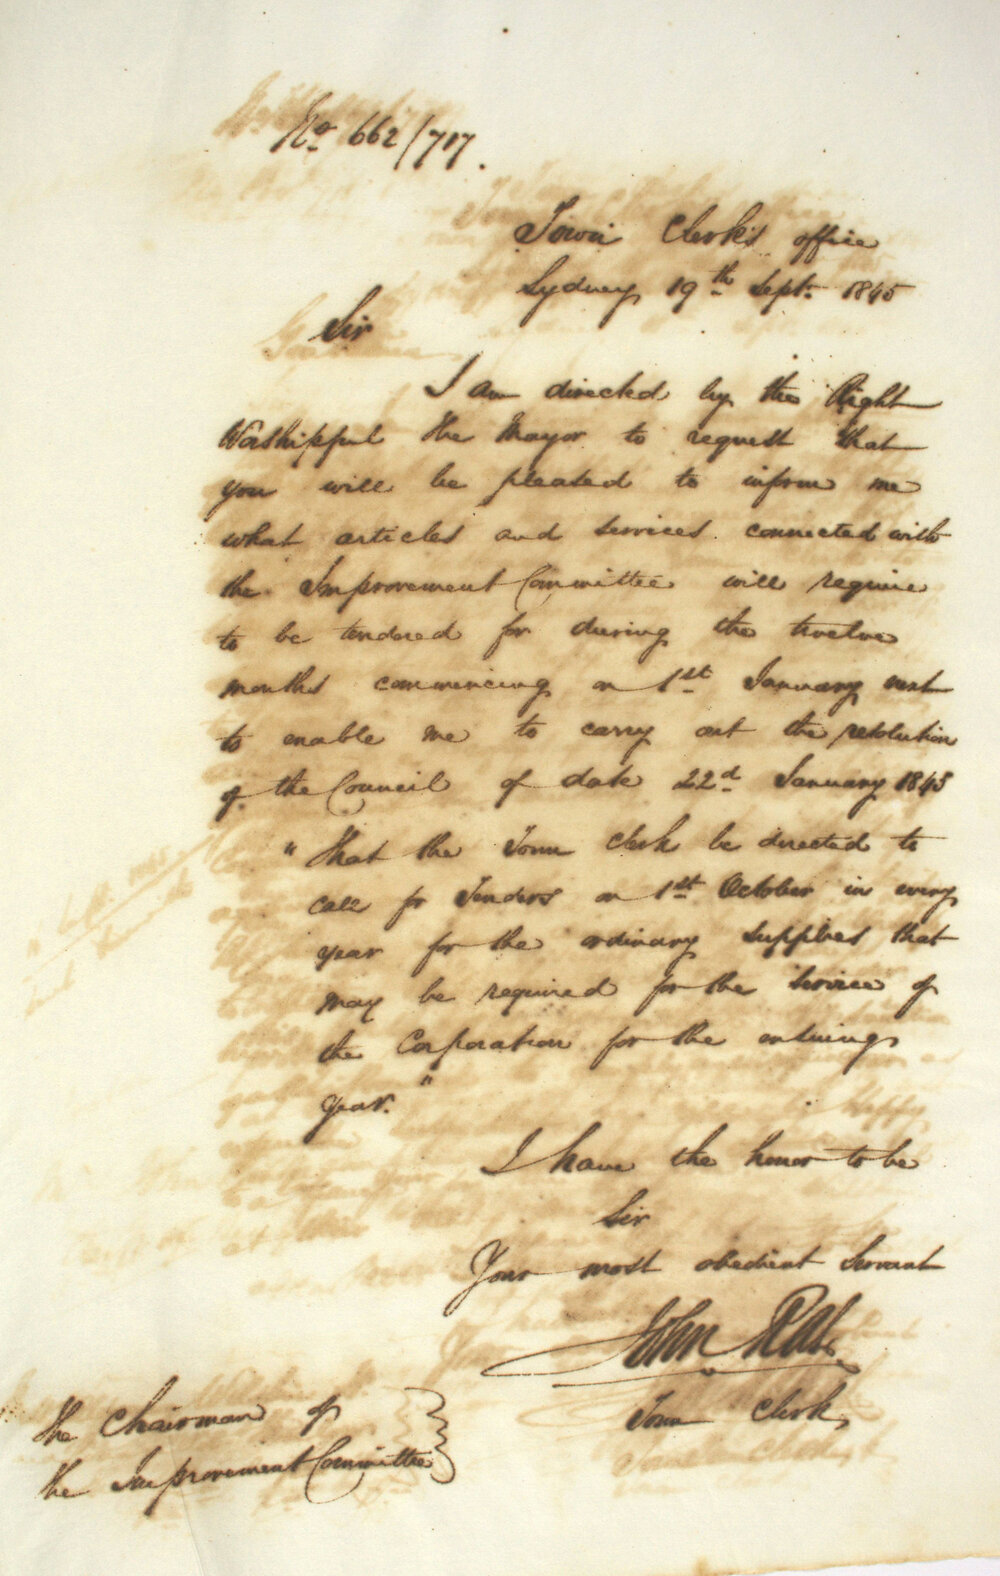 No. 662/717.
Town Clerk's office
Sydney 19th Sept. 1845
Sir
I am directed by the Right
Worshipful the Mayor to request that
you will be pleased to inform me
what articles and services connected with
the Improvement Committee will require
to be tendered for during the twelve
months commencing on 1st January next
to enable me to carry out the resolution
of the Council of date 22d January 1843
"That the Town Clerk be directed to
call for Tenders on 1st October in every
year for the ordinary supplies that
may be required for the service of
the Corporation for the ensuing
year."
I have the honor to be
Sir
Your most obedient Servant
John Rae
Town Clerk
The Chairman of
the Improvement Committee